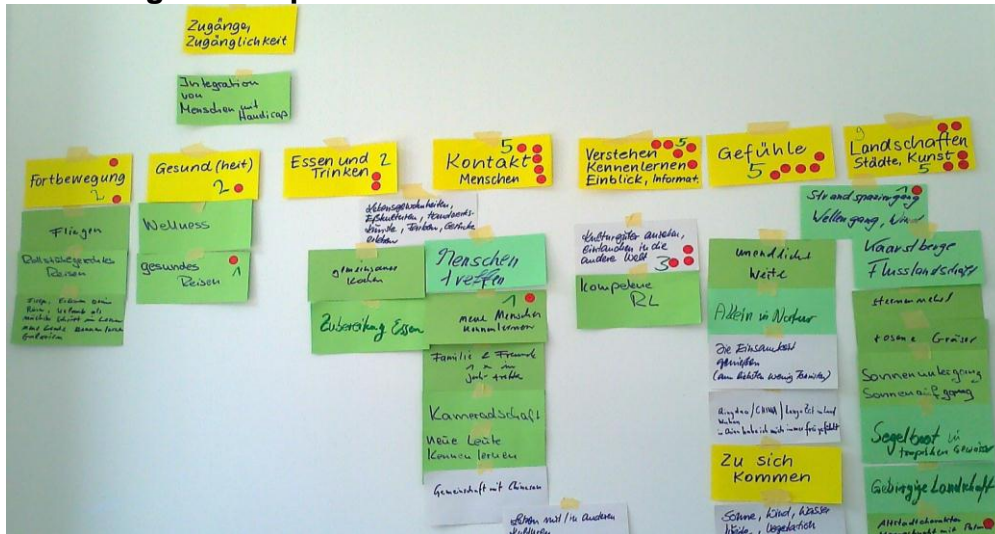 Zugänge,
Zugänglichkeit
Integration
von
Menschen mit
Handicap
Fortbewegung
2
Fliegen
Reisen
Gesund(heit)
2
Wellness
gesundes
Reisen
1
Essen und 2
Trinken
Lebensgewohnheiten,
Eßkulturen, Handwerks-
künste, Farben, Gerüche
erleben
gemeinsames
kochen
Zubereitung Essen
5
Kontakt
Menschen
Menschen
treffen
1
neue Menschen
kennenlernen
Familie & Freunde
1 x im
Jahr treffen
Kameradschaft
neue Leute
kennen lernen
Gemeinschaft mit Chinesen
Leben mit/in anderen
Kulturen
Verstehen 5
Kennenlernen
Einblick, Informat.
Kulturgüter ansehen,
eintauchen in die
andere Welt
3
kompetene
RL
Gefühle
5
unendliche
Weite
Allein in Natur
Die Einsamkeit
genießen
(am liebsten wenig Touristen)
CHINA
Zu sich
kommen
Sonne, Wind, Wasser
Weite, Vegetation
9
Landschaften
Städte, Kunst
5
Strandspaziergang 1
Wellengang, Wind
Flusslandschaft
Gräser
Sonnenuntergang
Sonnenaufgang
Segelboot in
tropischen Gewässer
Gebirgige Landschaft